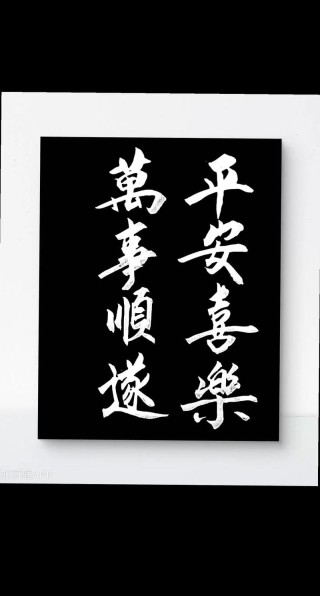 平安喜樂
萬事順遂